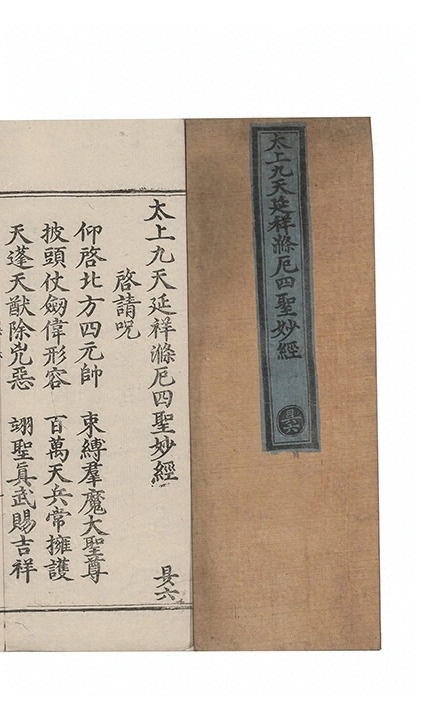 太上九天延祥滌厄四聖妙經
㫷六
太上九天延祥滌厄四聖妙經 㫷六
啓請呪
仰啓北方四元帥 束縛羣魔大聖尊
披頭仗劒偉形容 百萬天兵常擁護
天蓬天猷除兇惡 翊聖眞武賜吉祥